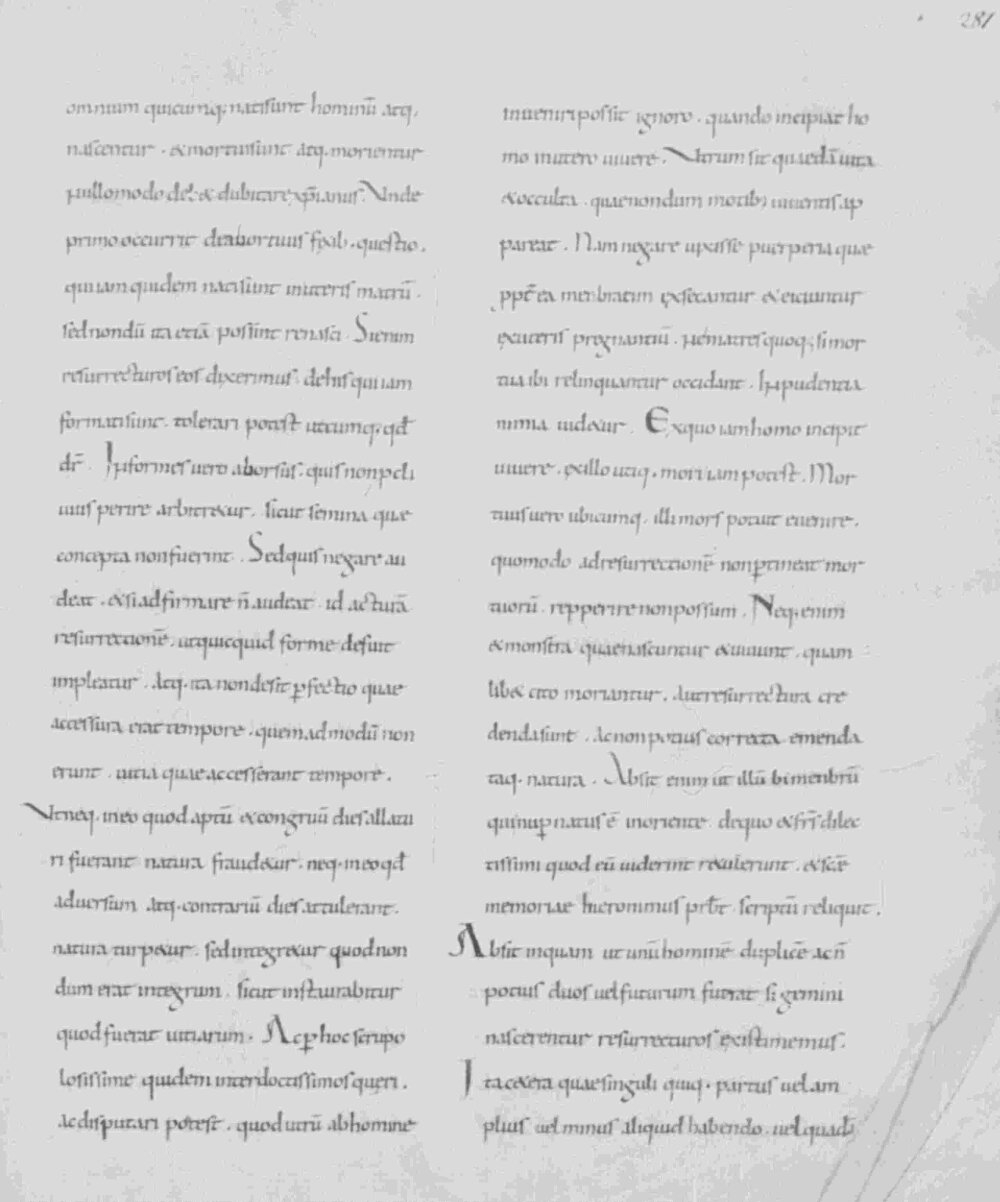 281
omnium quicumq; natisunt hominũ atq,
nascentur · &mortuisunt atq. morientur
Nullomodo deb& dubitare xp̃ianus. Vnde
primo occurrit de abortiuis fꝫ ab. questio.
qui iam quidem nati sunt inuteris matrũ.
sed nondũ ita etiã possint renasci. Sienim
resurrecturos eos dixerimus. dehis qui iam
formati sunt. tolerari potest utcumq; qd̃
dr̃. Informes uero aborsus. quis non pcli
uius perire arbitr&ur. sicut semina quæ
concepta non fuerint. Sed quis negare au
deat. &si adfirmare ñ audeat. id acturã
resurrectionẽ. ut quicquid forme defuit
impleatur. Atq. ita non desit ꝑfectio quae
accessura erat tempore. quemadmodũ non
erunt. uitia quae accesserant tempore.
Vt neq. in eo quod aptũ & congruũ dies allatu
ri fuerant natura fraud&ur. neq. in eo qd̃
aduersum atq. contrariũ dies attulerant.
natura turp&ur. sed integr&ur quod non
dum erat integrum. sicut instaurabitur
quod fuerat uitiatum. Ac ꝑ hoc scrupo
losissime quidem inter doctissimos queri.
ac disputari potest. quod utrũ ab homine
inueniri possit ignoro. quando incipiat ho
mo inutero uiuere. Vtrum sit quaedã uita
& occulta. quae nondum motib; uiuentis ap
pareat. Nam negare uixisse puerperia quæ
ppt̃ea menbratim exsecantur & eiciuntur
exuteris pregnantiũ. ne matres quoq; si mor
tua ibi relinquantur occidant. Inpudentia
nimia uid&ur. Exquo iam homo incipit
uiuere. exillo utiq. mori iam potest. Mor
tuus uero ubicumq. illi mors potuit euenire.
quomodo ad resurrectionẽ non ꝑtineat mor
tuorũ. repperire non possum. Neq. enim
& monstra quae nascuntur & uiuunt. quam
lib& cito moriantur. Aut resurrectura cre
denda sunt. Ac non potius correcta emenda
taq. natura. Absit enim ut illũ bimenbrũ
qui nuꝑ natus ẽ in oriente. de quo & fr̃s dilec
tissimi quod eũ uiderint r&ulerunt. & scæ̃
memoriae hieronimus prb̃t. scriptũ reliquit.
Absit inquam ut unũ hominẽ duplicẽ ac ñ
potius duos uel futurum fuerat si gemini
nascerentur resurrecturos existimemus.
Ita c&era quae singuli quiq. partus uel am
plius uel minus aliquid habendo. uel quadã